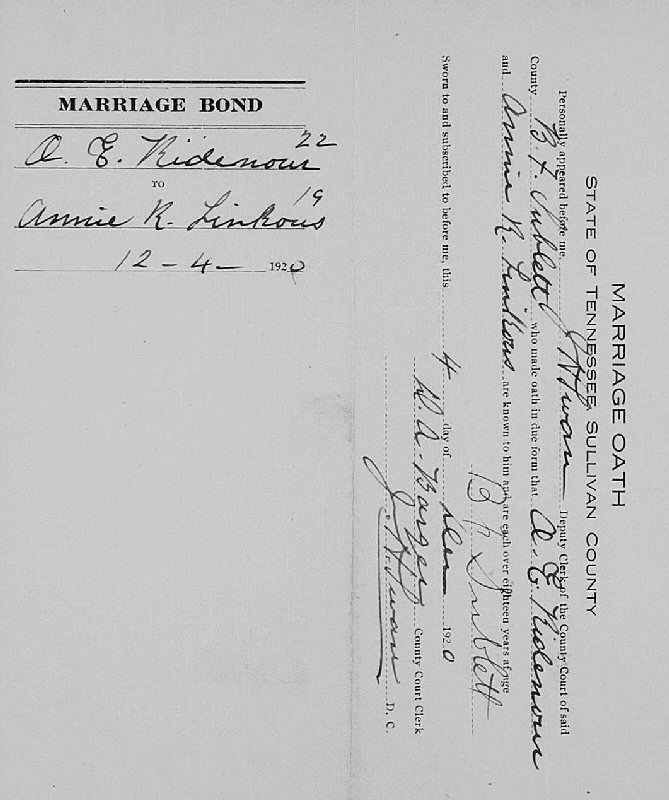 MARRIAGE BOND
A. E. Ridenour 22
TO
Annie R. Linkous 19
12 - 4 - 1920
MARRIAGE OATH
STATE OF TENNESSEE, SULLIVAN COUNTY
Personally appeared before me, J. H. Swan Deputy Clerk of the County Court of said
County B. F. Sublett who made oath in due form that A. E. Ridenour
and Annie R. Linkous are known to him and are each over eighteen years of age
B F Sublett
Sworn to and subscribed to before me, this 4 day of Dec 1920
W. A. Barger County Court Clerk
J. H. Swan D. C.